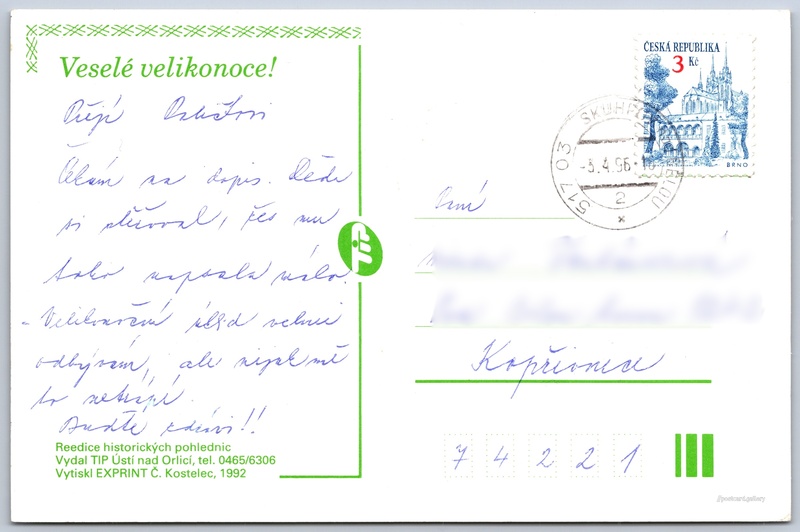 Veselé velikonoce!
Přejí
Čekám na dopis. Děda
si stěžoval, žes mu
toho napsala málo.
- Velikonoční úklid velmi
odbývám, ale nijak mě
to netrápí.
Buďte zdrávi!!
Reedice historických pohlednic
Vydal TIP Ústí nad Orlicí, tel. 0465/6306
Vytiskl EXPRINT Č. Kostelec, 1992
ČESKÁ REPUBLIKA
3 Kč
BRNO
517 03 SKUHROV
-3.4.96
2
Paní
Kopřivnice
74221
//postcard.gallery